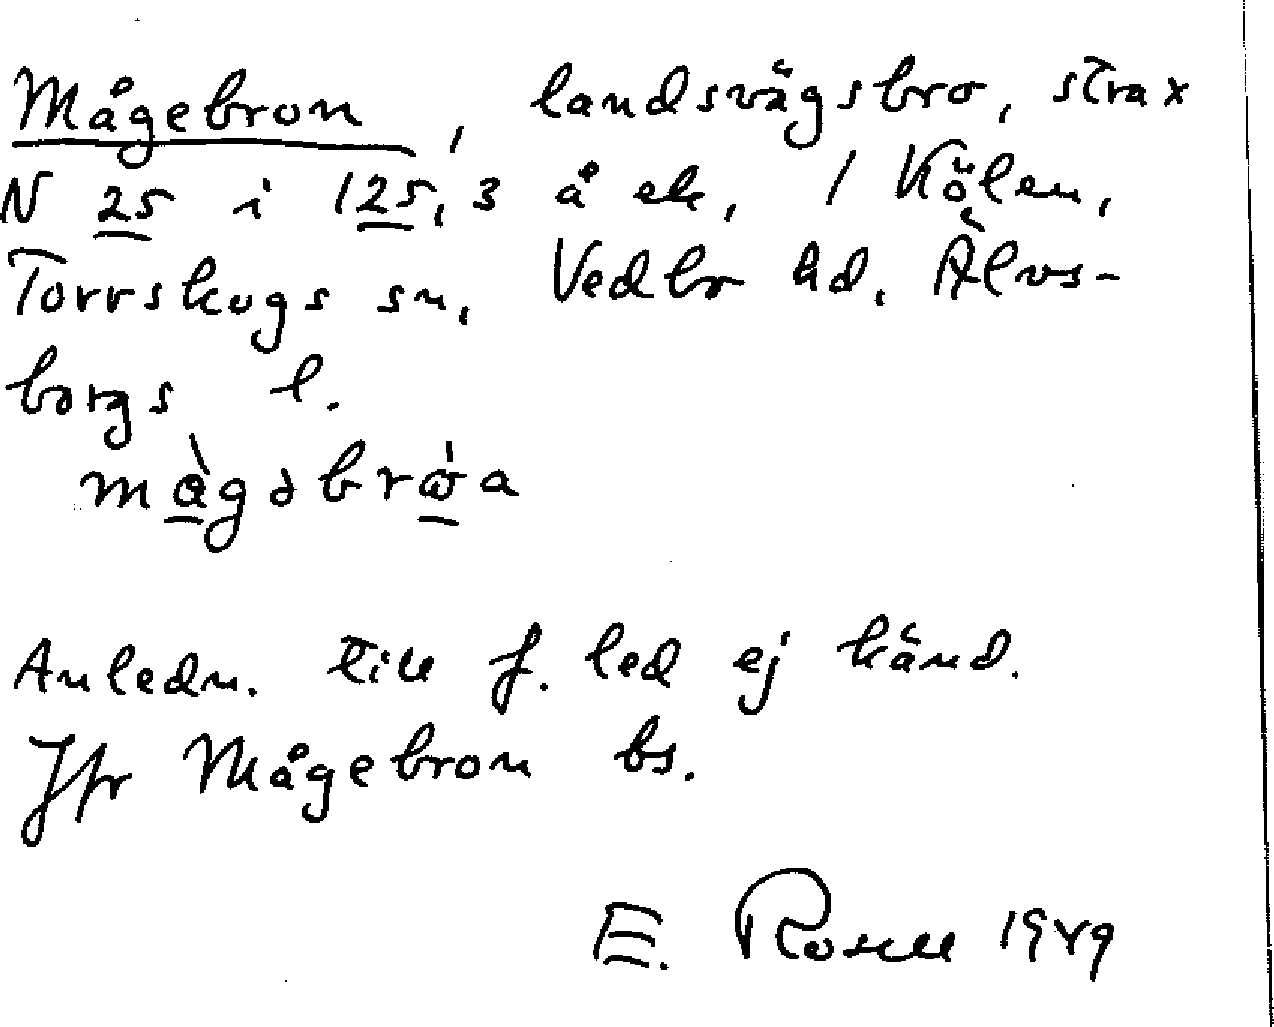 Mågebron, landsvägsbro, strax
N 25 i 125,3 å ek, 1 Kölen,
Torrskogs sn, Vedbo hd. Älvs-
borgs l.
màgəbrωa
Anledn. till f. led ej känd.
Jfr Mågebron bs.
E. Rosell 1949